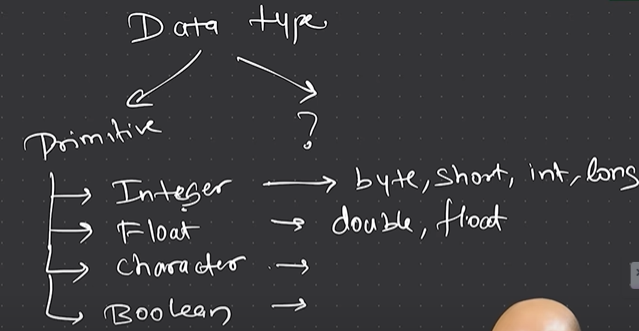 Data type
Primitive
?
Integer → byte, short, int, long
Float → double, float
Character →
Boolean →